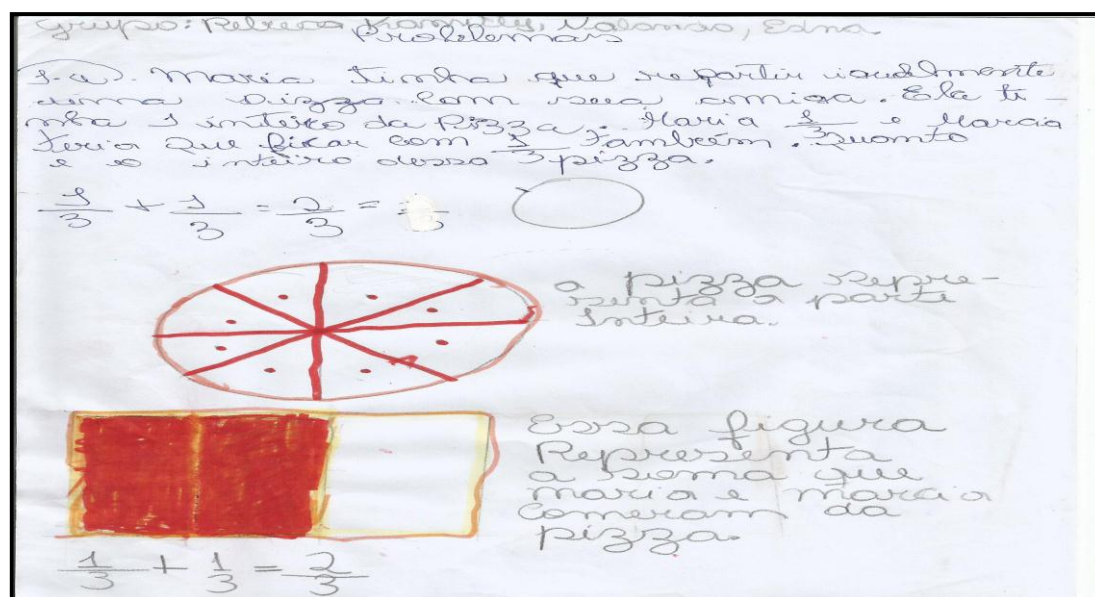 Grupo: Rebeca Kamylly, Edna.
Problemas
1-a. Maria tinha que repartir igualmente
uma pizza com sua amiga. Ela ti-
nha 1 inteiro da Pizza. Maria 1/3 e Marcia
teria que ficar com 1/3 também. Quanto
e o inteiro dessa pizza.
1/3 + 1/3 = 2/3 = /3
a pizza repre-
senta a parte
Inteira.
Essa figura
Representa
a soma que
maria e marcia
comeram da
pizza.
1/3 + 1/3 = 2/3